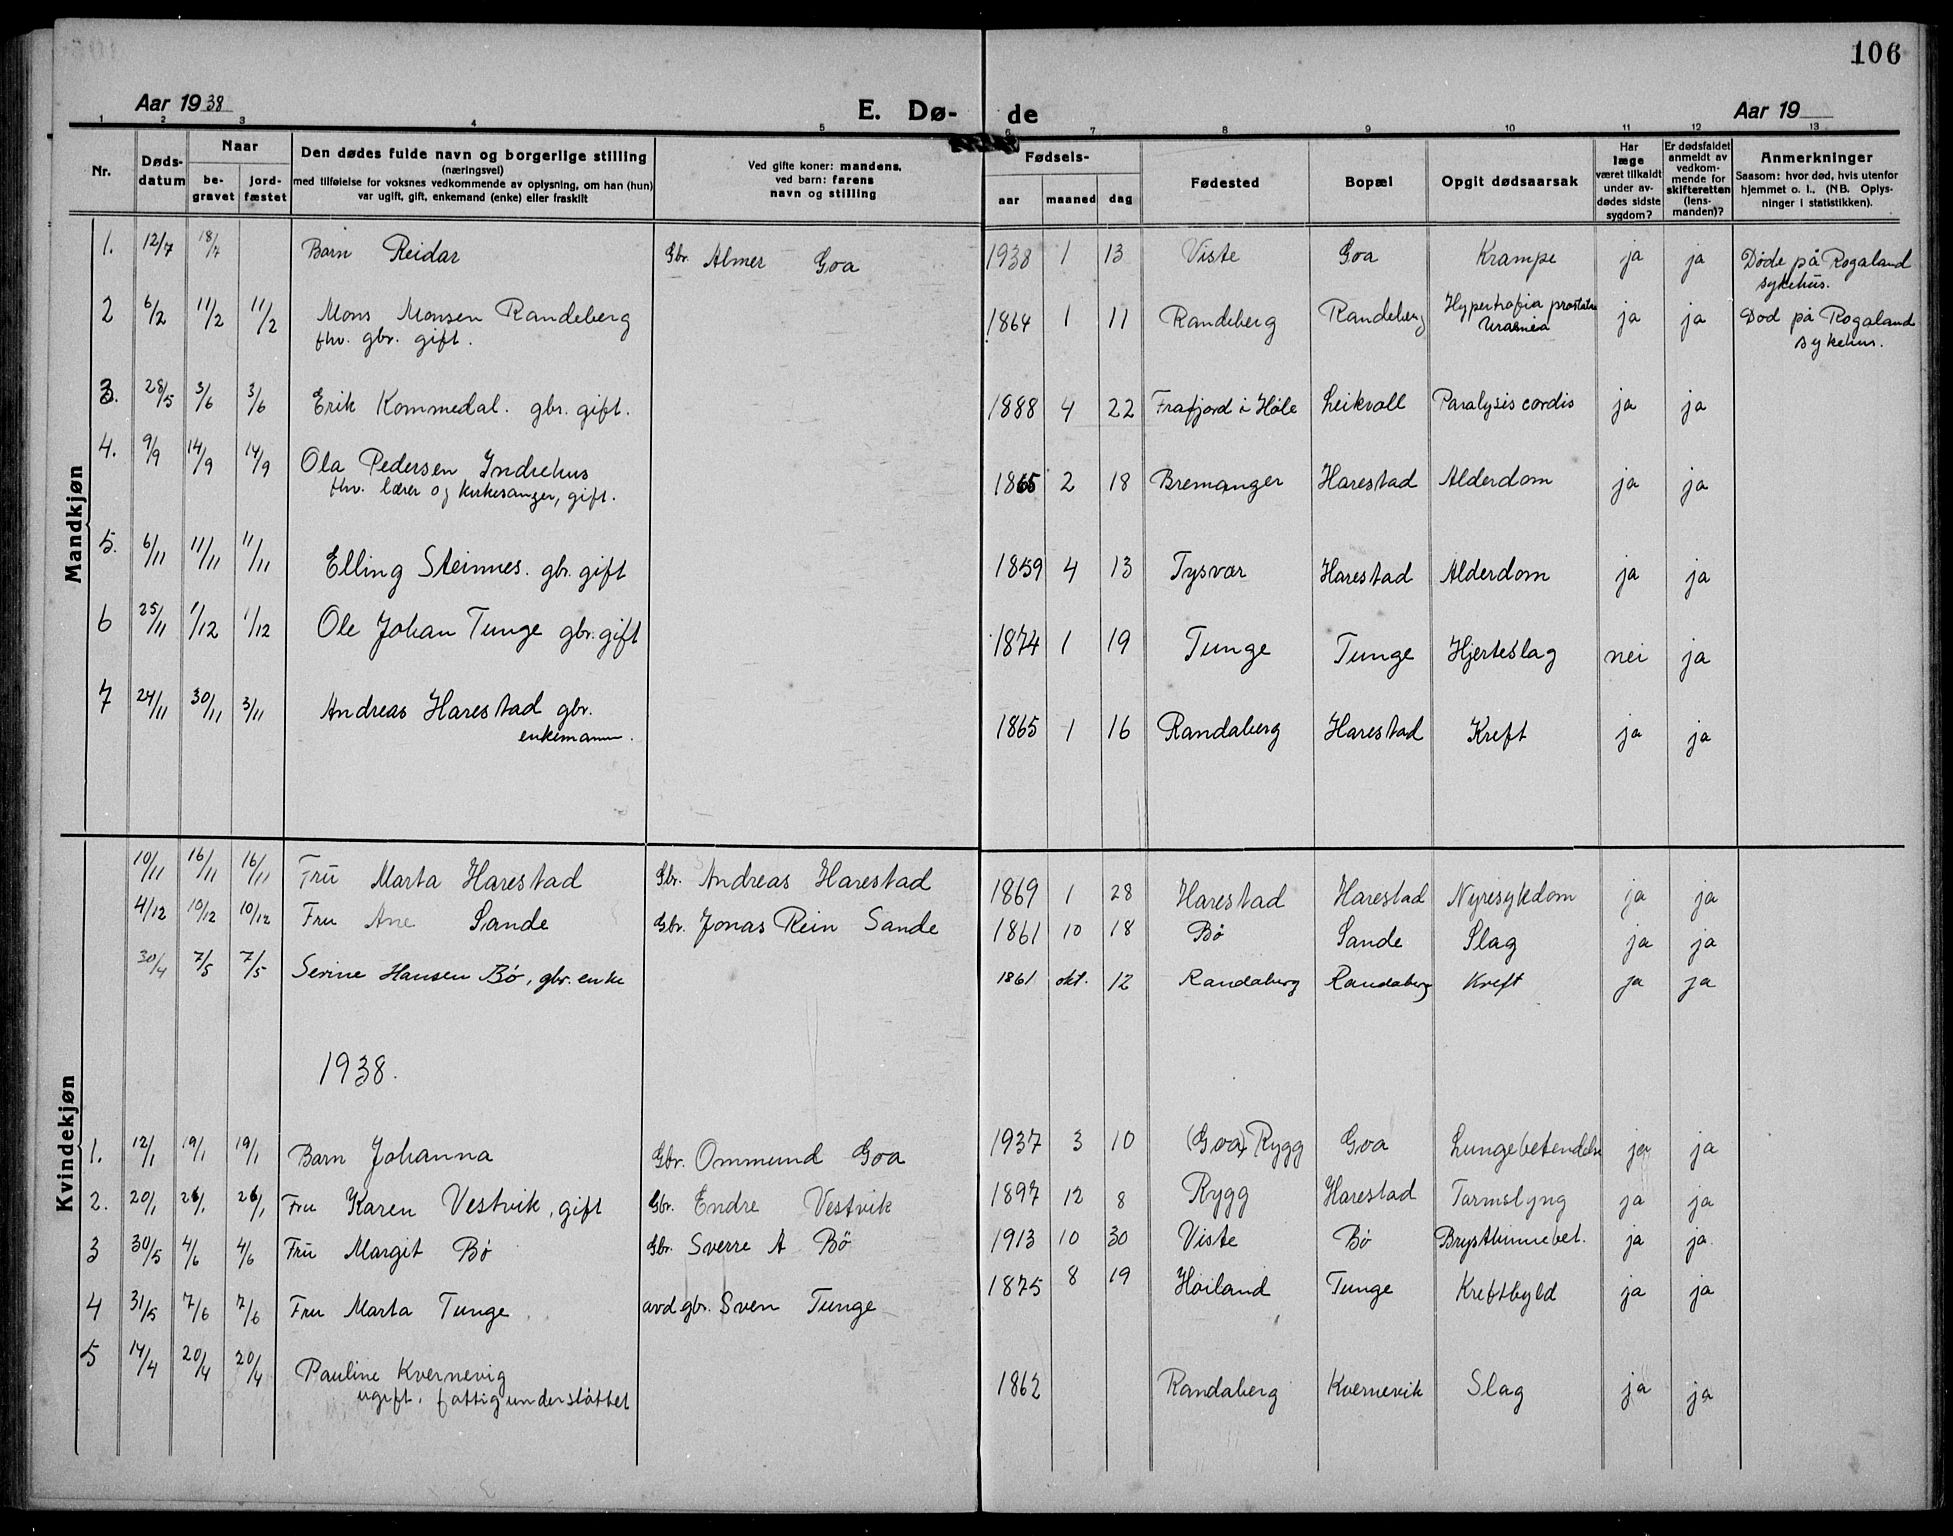 106
Aar 1938 E. Dø- de Aar 19
1 2 3 4 5 6 7 8 9 10 11 12 13
Nr. Døds-datum Naar be-gravet jord-fæstet Den dødes fulde navn og borgerlige stilling (næringsvei) med tilføielse for voksnes vedkommende av oplysning, om han (hun) var ugift, gift, enkemand (enke) eller fraskilt Ved gifte koner: mandens, ved barn: farens navn og stilling Fødsels- aar maaned dag Fødested Bopæl Opgit dødsaarsak Har læge været tilkaldt under av-dødes sidste sygdom? Er dødsfaldet anmeldt av vedkom-mende for skifteretten (lens-manden)? Anmerkninger Saasom: hvor død, hvis utenfor hjemmet o. l., (NB. Oplys-ninger i statistikken).
Mandkjøn
1. 12/7 18/7 Barn Reidar Gbr. Almer Goa 1938 1 13 Viste Goa Krampe ja ja Døde på Rogaland
sykehus.
2 6/2 11/2 11/2 Mons Monsen Randeberg 1864 1 11 Randeberg Randeberg Hypertrofia prostatae ja ja Død på Rogaland
fhv. gbr. gift. Uraemia sykehus.
3. 28/5 3/6 3/6 Erik Kommedal. gbr. gift. 1888 4 22 Frafjord i Høle Leikvoll Paralysis cordis ja ja
4. 9/9 14/9 14/9 Ola Pedersen Indrehus 1865 2 18 Bremanger Harestad Alderdom ja ja
fhv. lærer og kirkesanger, gift.
5. 6/11 11/11 11/11 Elling Steinnes. gbr. gift 1859 4 13 Tysvær Harestad Alderdom ja ja
6 25/11 1/12 1/12 Ole Johan Tunge gbr. gift 1874 1 19 Tunge Tunge Hjerteslag nei ja
7 24/11 30/11 3/11 Andreas Harestad gbr. 1865 1 16 Randaberg Harestad Kreft ja ja
enkemann.
Kvindekjøn
10/11 16/11 16/11 Fru Marta Harestad Gbr. Andreas Harestad 1869 1 28 Harestad Harestad Nyresykdom ja ja
4/12 10/12 10/12 Fru Ane Sande Gbr. Jonas Rein Sande 1861 10 18 Bø Sande Slag ja ja
30/4 7/5 7/5 Serine Hansen Bø, gbr. enke 1861 okt. 12 Randaberg Randaberg Kreft ja ja
1938.
1. 12/1 19/1 19/1 Barn Johanna Gbr. Ommund Goa 1937 3 10 (Goa) Rygg Goa Lungebetendelse ja ja
2. 20/1 26/1 26/1 Fru Karen Vestvik, gift Gbr. Endre Vestvik 1897 12 8 Rygg Harestad Tarmslyng ja ja
3 30/5 4/6 4/6 Fru Margit Bø Gbr. Sverre A Bø 1913 10 30 Viste Bø Brysthinnebet. ja ja.
4 31/5 7/6 7/6 Fru Marta Tunge avd gbr. Sven Tunge 1875 8 19 Høiland Tunge Kreftbyld ja ja
5 14/4 20/4 20/4 Pauline Kvernevig 1862 Randaberg Kvernevik Slag ja ja
ugift. fattigunderstøttet